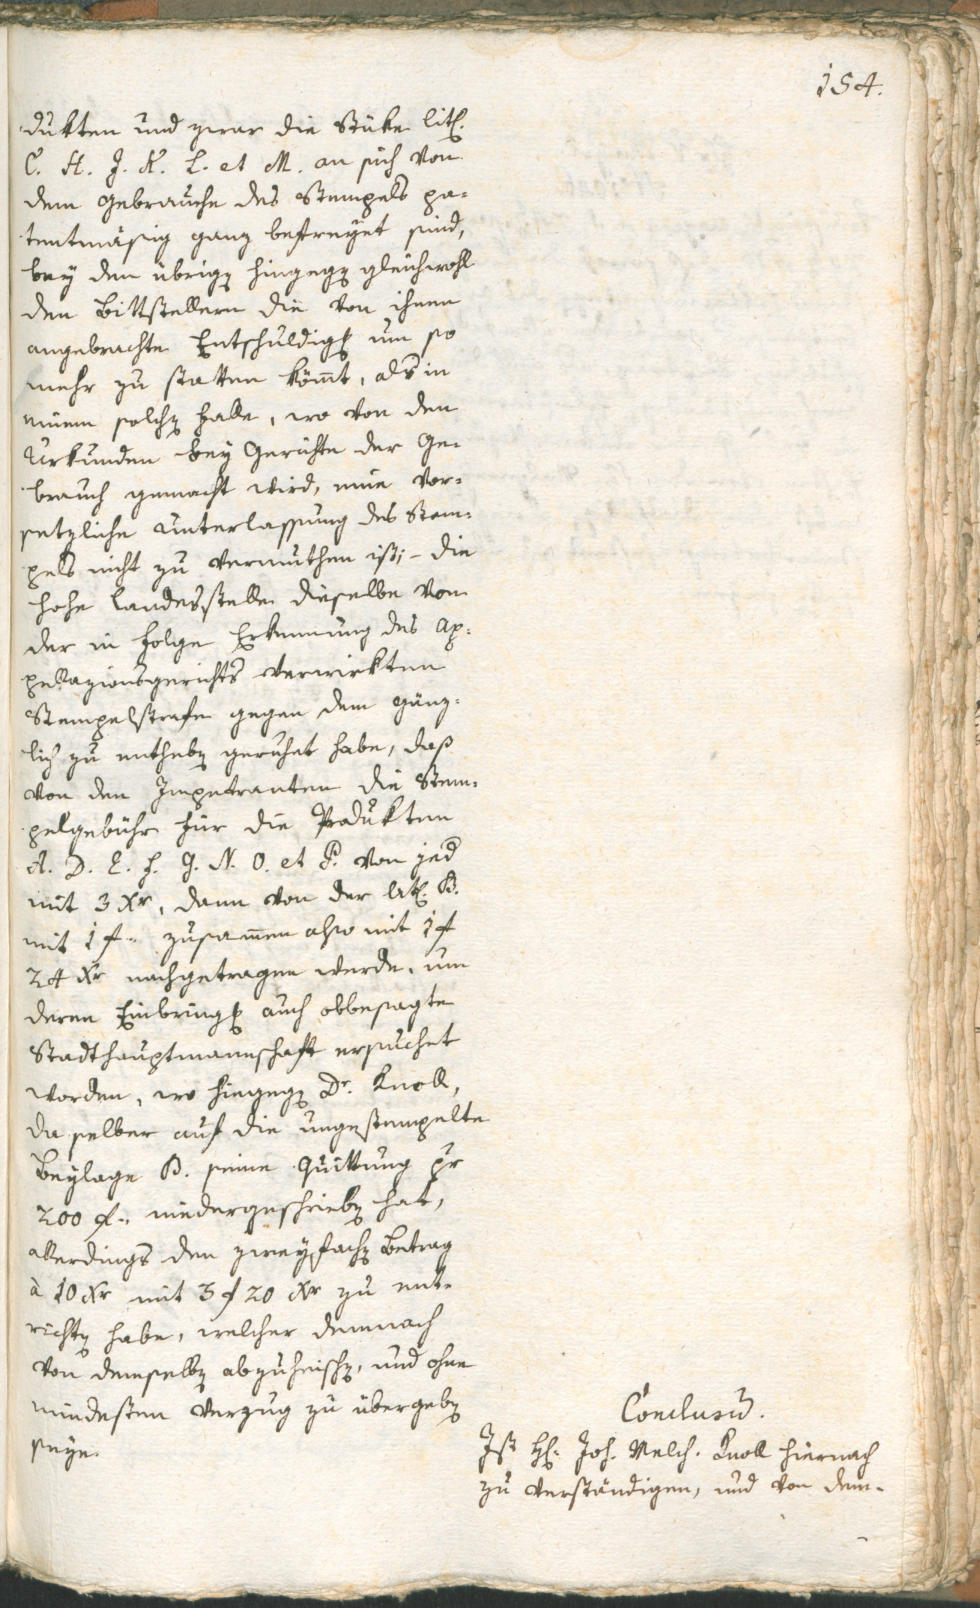 154.
dukten und zwar die Stüke lit.
C. H. J. K. L. et M. an sich von
dem Gebrauche des Stempels pa-
tentmäsig ganz befreyet sind,
bey den übrigen hingegen gleichwohl
den Bittstellern die von ihnen
angebrachte Entschuldigung um so
mehr zu statten kömt, als in
einem solchen Falle, wo von den
Urkunden bey Gerichte der Ge-
brauch gemacht wird, eine vor-
setzliche Unterlassung des Stem-
pels nicht zu vermuthen ist; - die
hohe Landesstelle dieselbe von
der in Folge Erkennung des Ap-
pellazionsgerichts verwirkten
Stempelstrafe gegen dem gänz-
lich zu entheben geruhet habe, daß
von den Impetranten die Stem-
pelgebühr für die Produkten
A. D. E. F. G. N. O. et P. von jed
mit 3 Xr, dann von der lit. B.
mit 1 f. zusamen also mit 1 f
24 Xr nachgetragen werde, um
deren Einbringung auch obbesagte
Stadthauptmannschaft ersuchet
worden, wo hingegen Dr. Knoll,
da selber auf die ungestempelte
Beylage B. seine Quittung pr
200 f. niedergeschrieben hat,
allerdings den zweyfachen Betrag
à 10 Xr mit 3 f 20 Xr zu ent-
richten habe, welcher demnach
von demselben abzuheischen, und ohne
mindesten Verzug zu übergeben
seye.
Conclusum.
Ist H. Joh. Melch. Knoll hiernach
zu verständigen, und von dem-